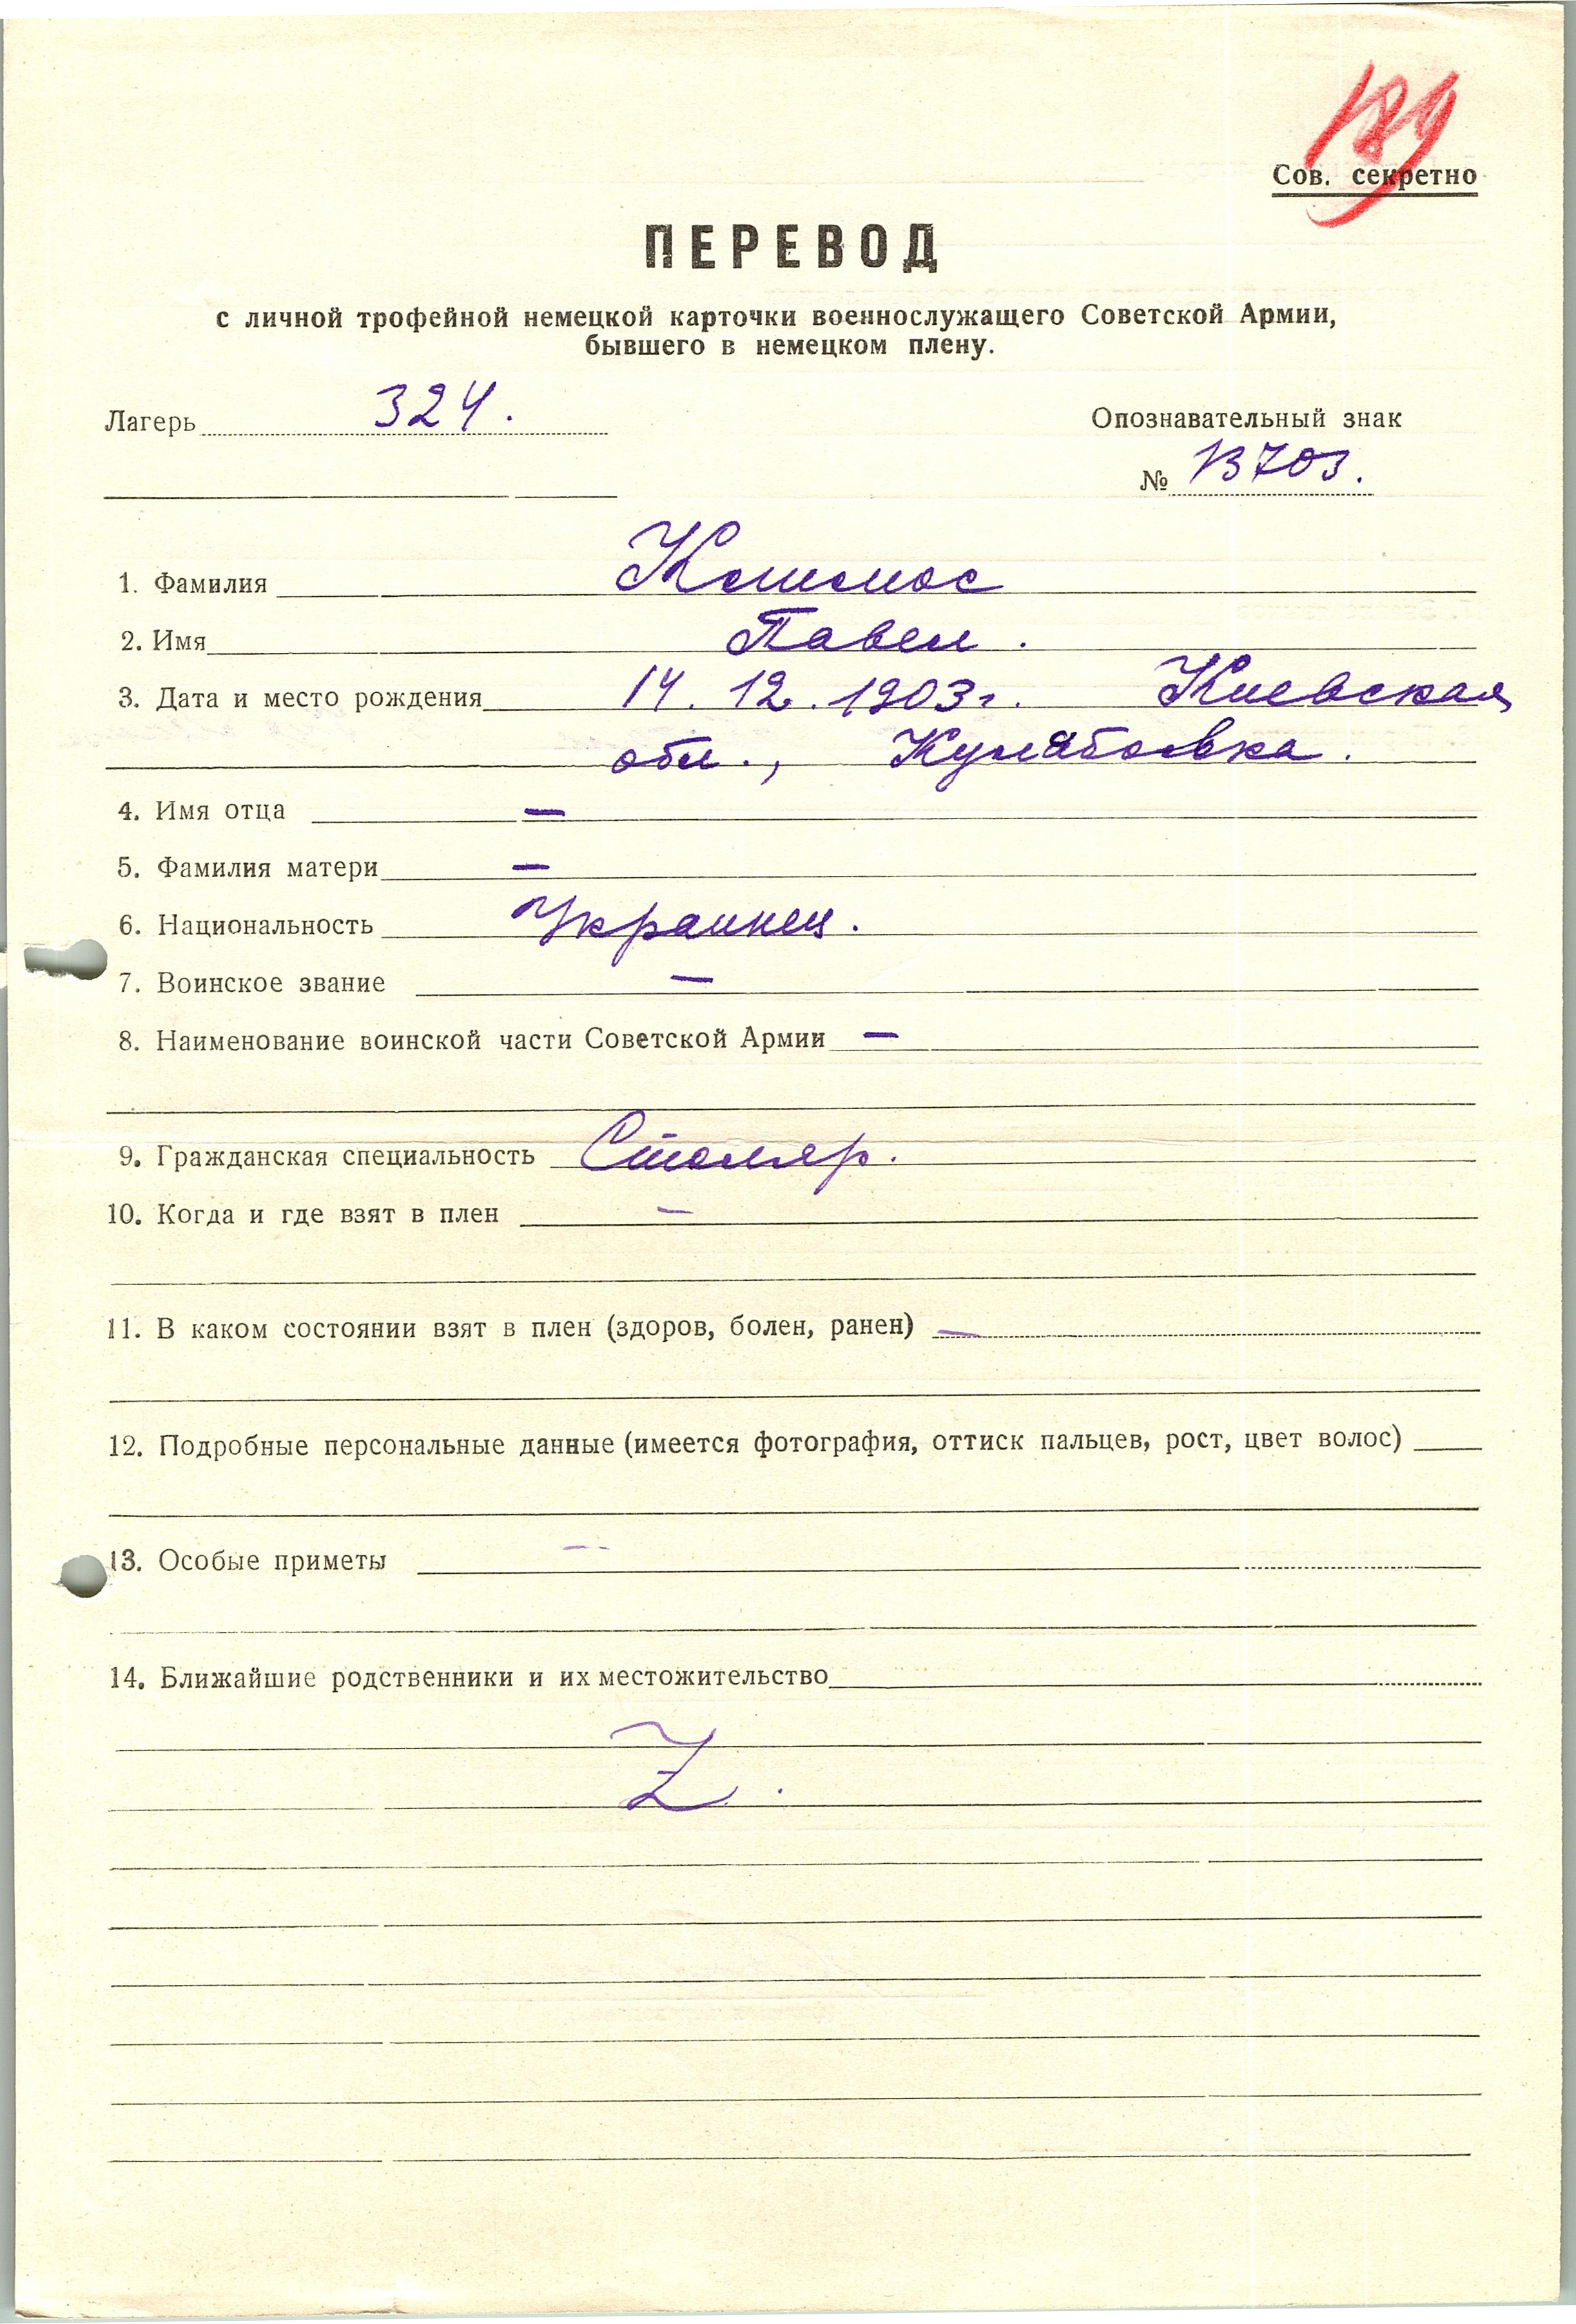 189
Сов. секретно
ПЕРЕВОД
с личной трофейной немецкой карточки военнослужащего Советской Армии,
бывшего в немецком плену.
Лагерь 324.
Опознавательный знак
№ 13703.
1. Фамилия
2. Имя Павел.
3. Дата и место рождения 14. 12. 1903г. Киевская
обл.,
4. Имя отца —
5. Фамилия матери —
6. Национальность Украинец.
7. Воинское звание —
8. Наименование воинской части Советской Армии —
9. Гражданская специальность Столяр.
10. Когда и где взят в плен —
11. В каком состоянии взят в плен (здоров, болен, ранен) —
12. Подробные персональные данные (имеется фотография, оттиск пальцев, рост, цвет волос)
13. Особые приметы —
14. Ближайшие родственники и их местожительство
Z.